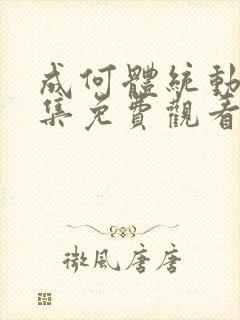 成何體統動
集免費觀看
微風唐唐